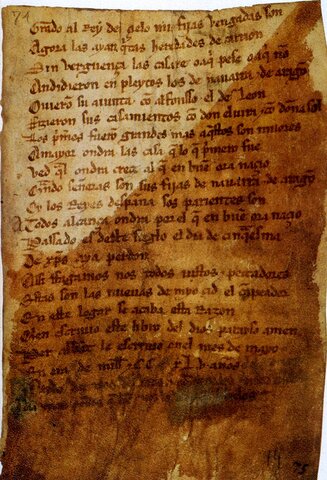 71
Grado al Rey del çielo mis fijas vengadas son
Agora las ayan q̃tas heredades de carrion
Sin verguença las casare o aq̃ pese o aq̃ nõ
Andidieron en pleytos los de nauarra & de aragõ
Ouierõ su aiunta cõ alfonsso el de Leon
Fizieron sus casamientos cõ don eluira & cõ doña sol
Los p̃meros fuerõ grandes mas aq̃stos son miiores
A mayor ondra las casa q̃ lo q̃ p̃mero fue
Ved q̃l ondra creçe al q̃ en buẽ ora naçio
Q̃ndo señoras son sus fijas de nauarra & de aragõ
Oy los Reyes despaña sos parientes son
A todos alcança ondra por el q̃ en buẽ ora naçio
Passado es deste sieglo el dia de cinq̃esma
De xp̃s aya perdon
Assi ffagamos nos todos iustos & peccadores
Estas son las nueuas de myo çid el campeador
En este logar se acaba esta Razon
Quien escriuio este libro del dios parayso amen
Per abbat le escriuio en el mes de mayo
En era de mill & CC xLv anos
75